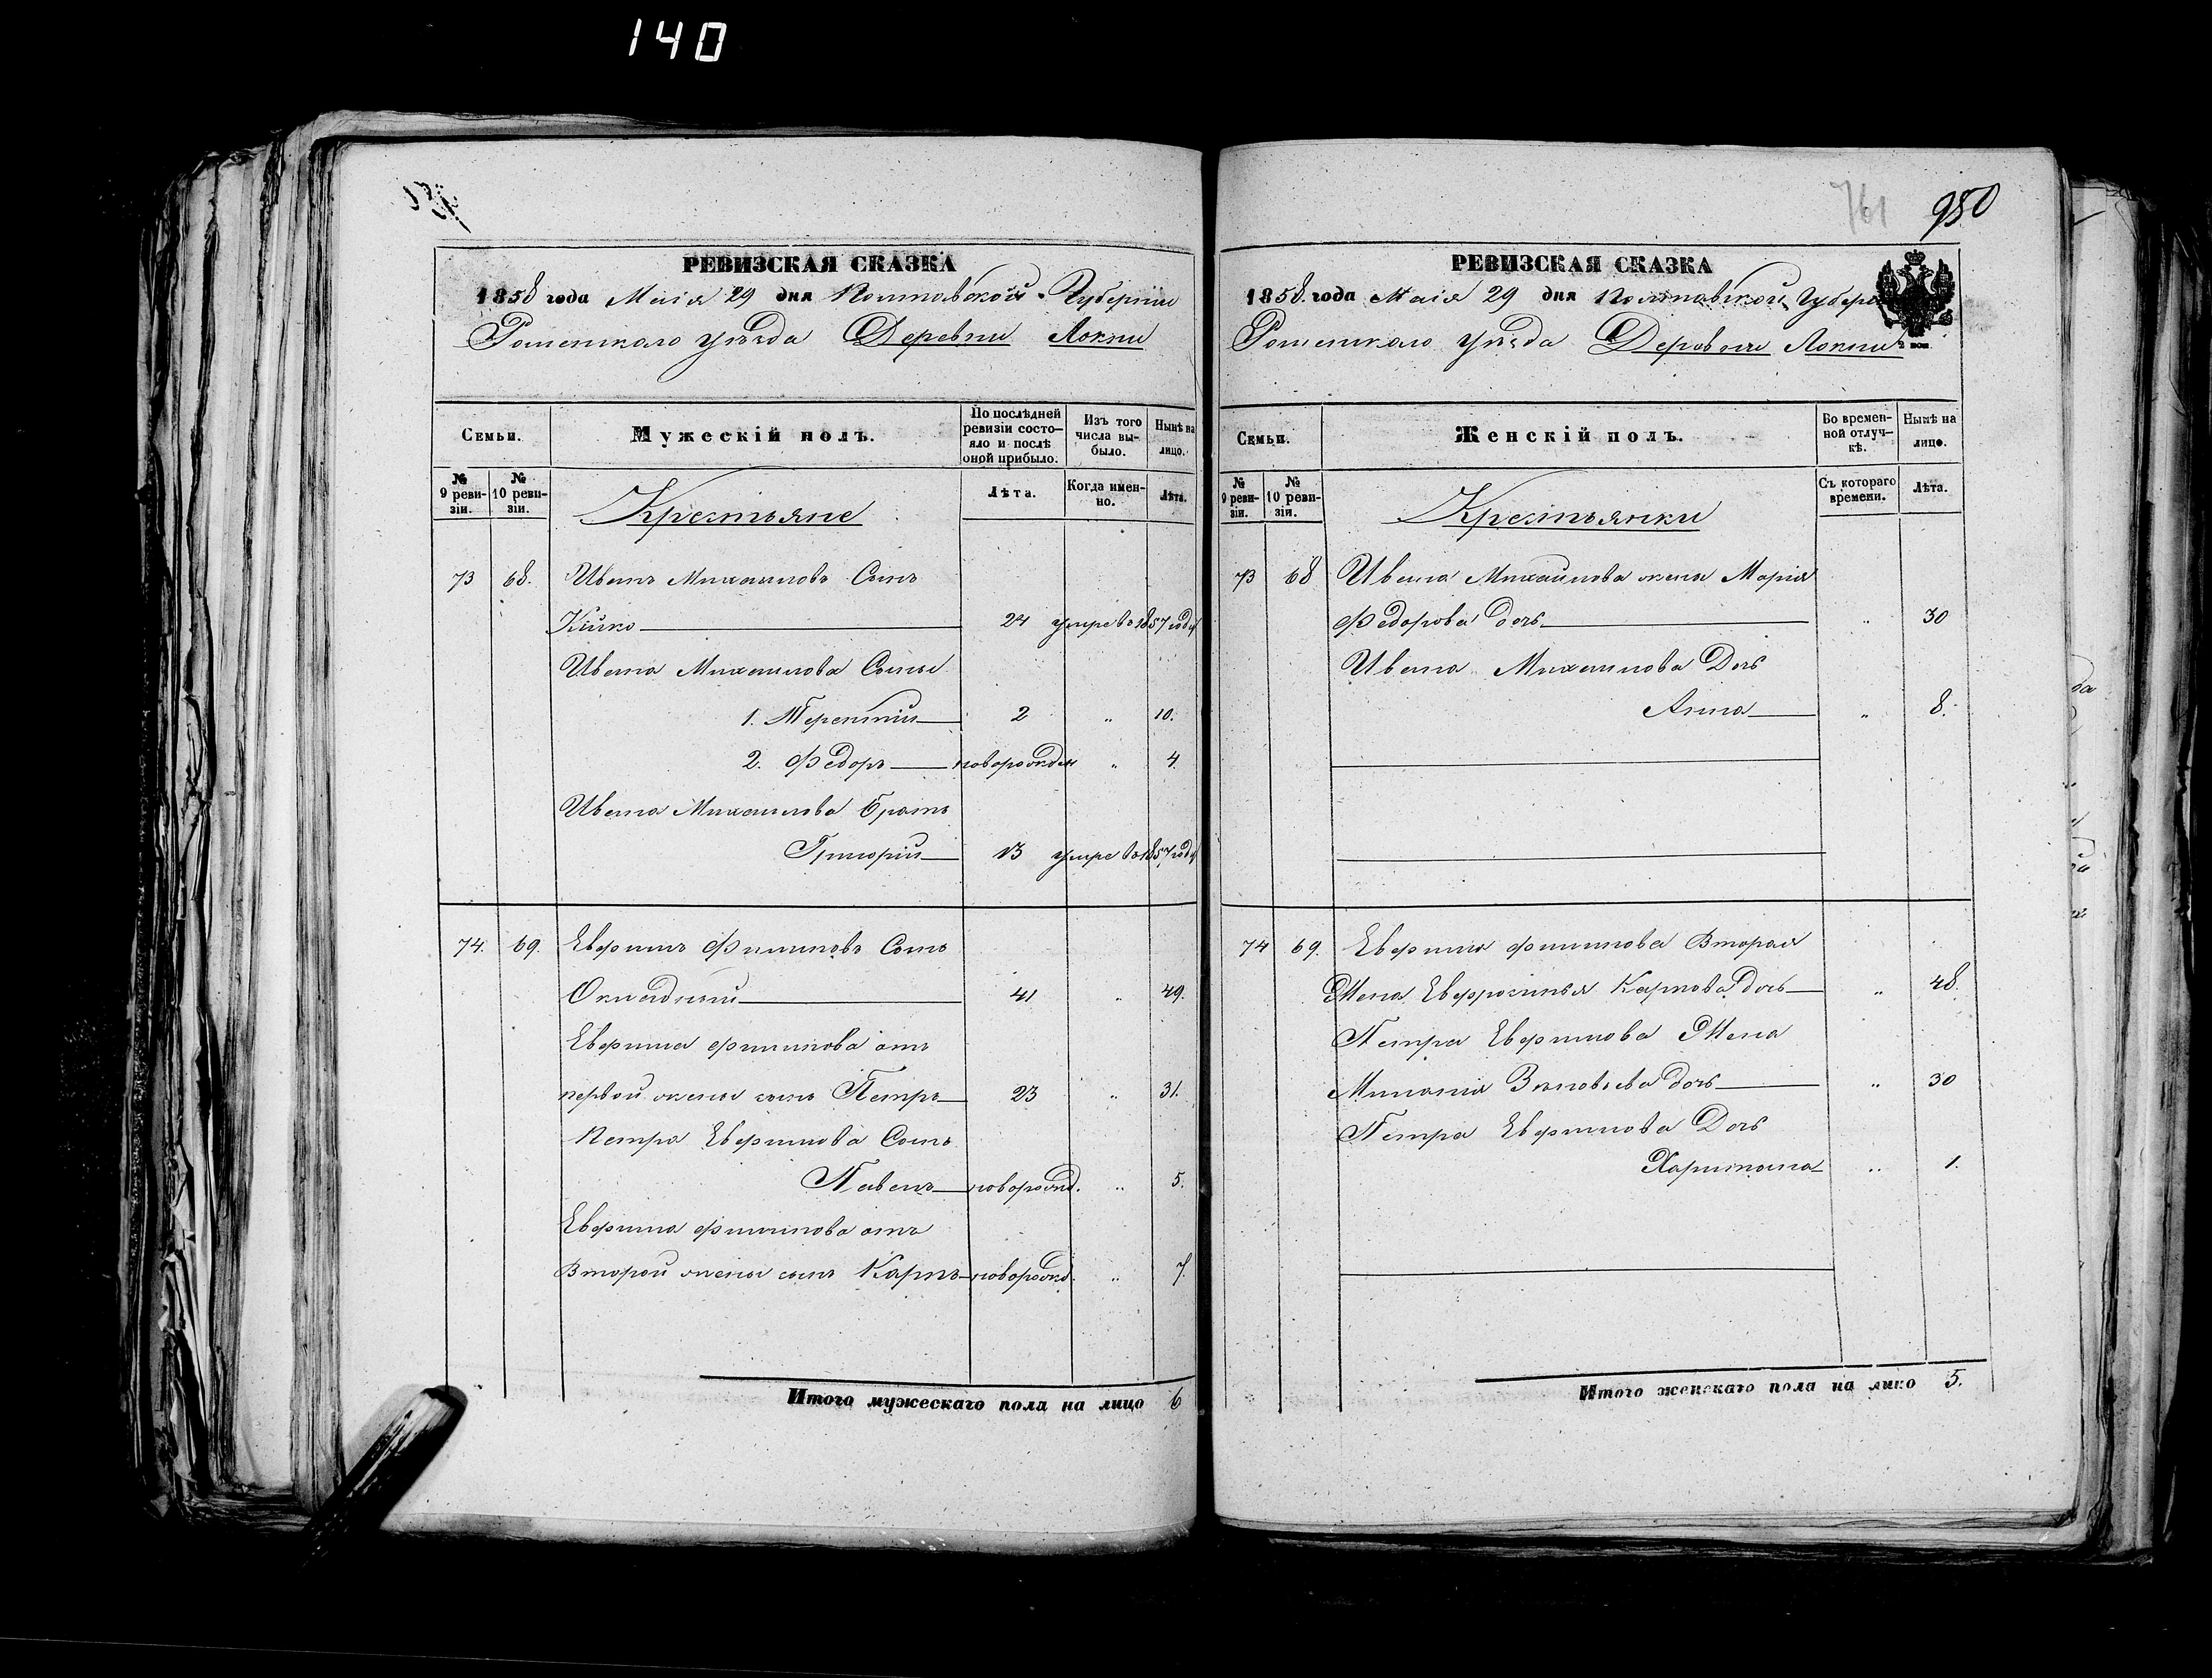 140
761
950
РЕВИЗСКАЯ СКАЗКА
1858 года Маія 29 дня Полтавской Губерніи
Роменскаго уѣзда Деревни Локни
Семьи.
Мужескій полъ.
По послѣдней ревизіи состояло и послѣ оной прибыло.
Изъ того числа выбыло.
Нынѣ на лицо.
№ 9 ревизіи.
№ 10 ревизіи.
Крестьяне
Лѣта.
Когда именно.
Лѣта.
73 68. Иванъ Михайловъ Сынъ
Кійко 24 умре въ 1857 году
Ивана Михайлова Сыны
1. Терентій 2 " 10.
2. Федоръ новорожден " 4
Ивана Михайлова Братъ
Григорій 13 умре въ 1857 году
74. 69. Евфимъ Филиповъ Сынъ
41 " 49.
Евфима Филипова отъ
первой жены сынъ Петръ 23 " 31.
Петра Евфимова Сынъ
Павелъ новорожд. " 5.
Евфима Филипова отъ
Второй жены сынъ Карпъ новорожд. " 7.
Итого мужескаго пола на лицо 6
РЕВИЗСКАЯ СКАЗКА
1858. года Маія 29 дня Полтавской Губерніи
Роменскаго уѣзда Деревни Локни
Семьи.
Женскій полъ.
Во временной отлучкѣ.
Нынѣ на лицо.
№ 9 ревизіи.
№ 10 ревизіи.
Крестьянки
Съ котораго времени.
Лѣта.
73 68 Ивана Михайлова жена Марія
Федорова дочь " 30
Ивана Михайлова Дочь
Анна " 8.
74 69. Евфима Филипова Вторая
Жена Евфросинья Карпова дочь " 48.
Петра Евфимова Жена
Миланія дочь " 30
Петра Евфимова Дочь
Харитина " 1.
Итого женскаго пола на лицо 5.